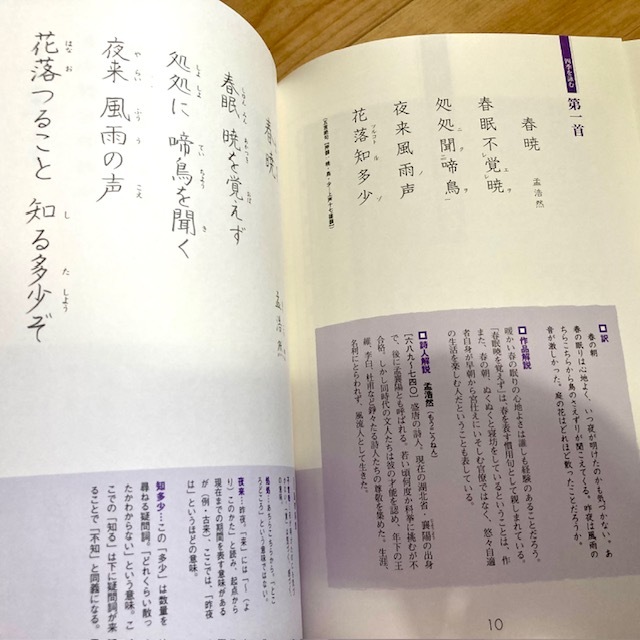 四季を詠む
第一首
春暁
孟浩然
春眠不覚暁
処処聞啼鳥
夜来風雨声
花落知多少
■訳
春の朝
春の眠りは心地よく、いつ夜が明けたのかも気づかない。あ
ちらこちらから鳥のさえずりが聞こえてくる。昨夜は風雨の
音が激しかった。庭の花はどれほど散ったことだろうか。
■作品解説
暖かい春の眠りの心地よさは誰しも経験のあることだろう。
「春眠暁を覚えず」は、春を表す慣用句として親しまれている。
また、春の朝、ぬくぬくと寝坊をしているということは、作
者自身が早朝から宮仕えにいそしむ官僚ではなく、悠々自適
の生活を楽しむ人だということも表している。
■詩人解説 孟浩然(もうこうねん)
〔六八九〜七四〇〕盛唐の詩人。現在の湖北省・襄陽の出身
で、後に孟襄陽とも呼ばれる。若い頃何度か科挙に挑むが不
合格。しかし同時代の文人たちは彼の才能を認め、年下の王
維、李白、杜甫など錚々たる詩人たちの尊敬を集めた。生涯、
名利にとらわれず、風流人として生きた。
10
春暁
孟浩然
春眠 暁を覚えず
処処に 啼鳥を聞く
夜来 風雨の声
花落つること 知る多少ぞ
夜来…夜、「来」には「〜(よ
り)このかた」と読み、起点から
現在までの期間を表す意味がある
(例・古来)。ここでは、「昨夜
は」というほどの意味。
知多少…この「多少」は数量を
尋ねる疑問詞。「どれくらい散っ
たかわからない」という意味。こ
こでの「知る」は下に疑問詞が来
ることで「不知」と同義になる。